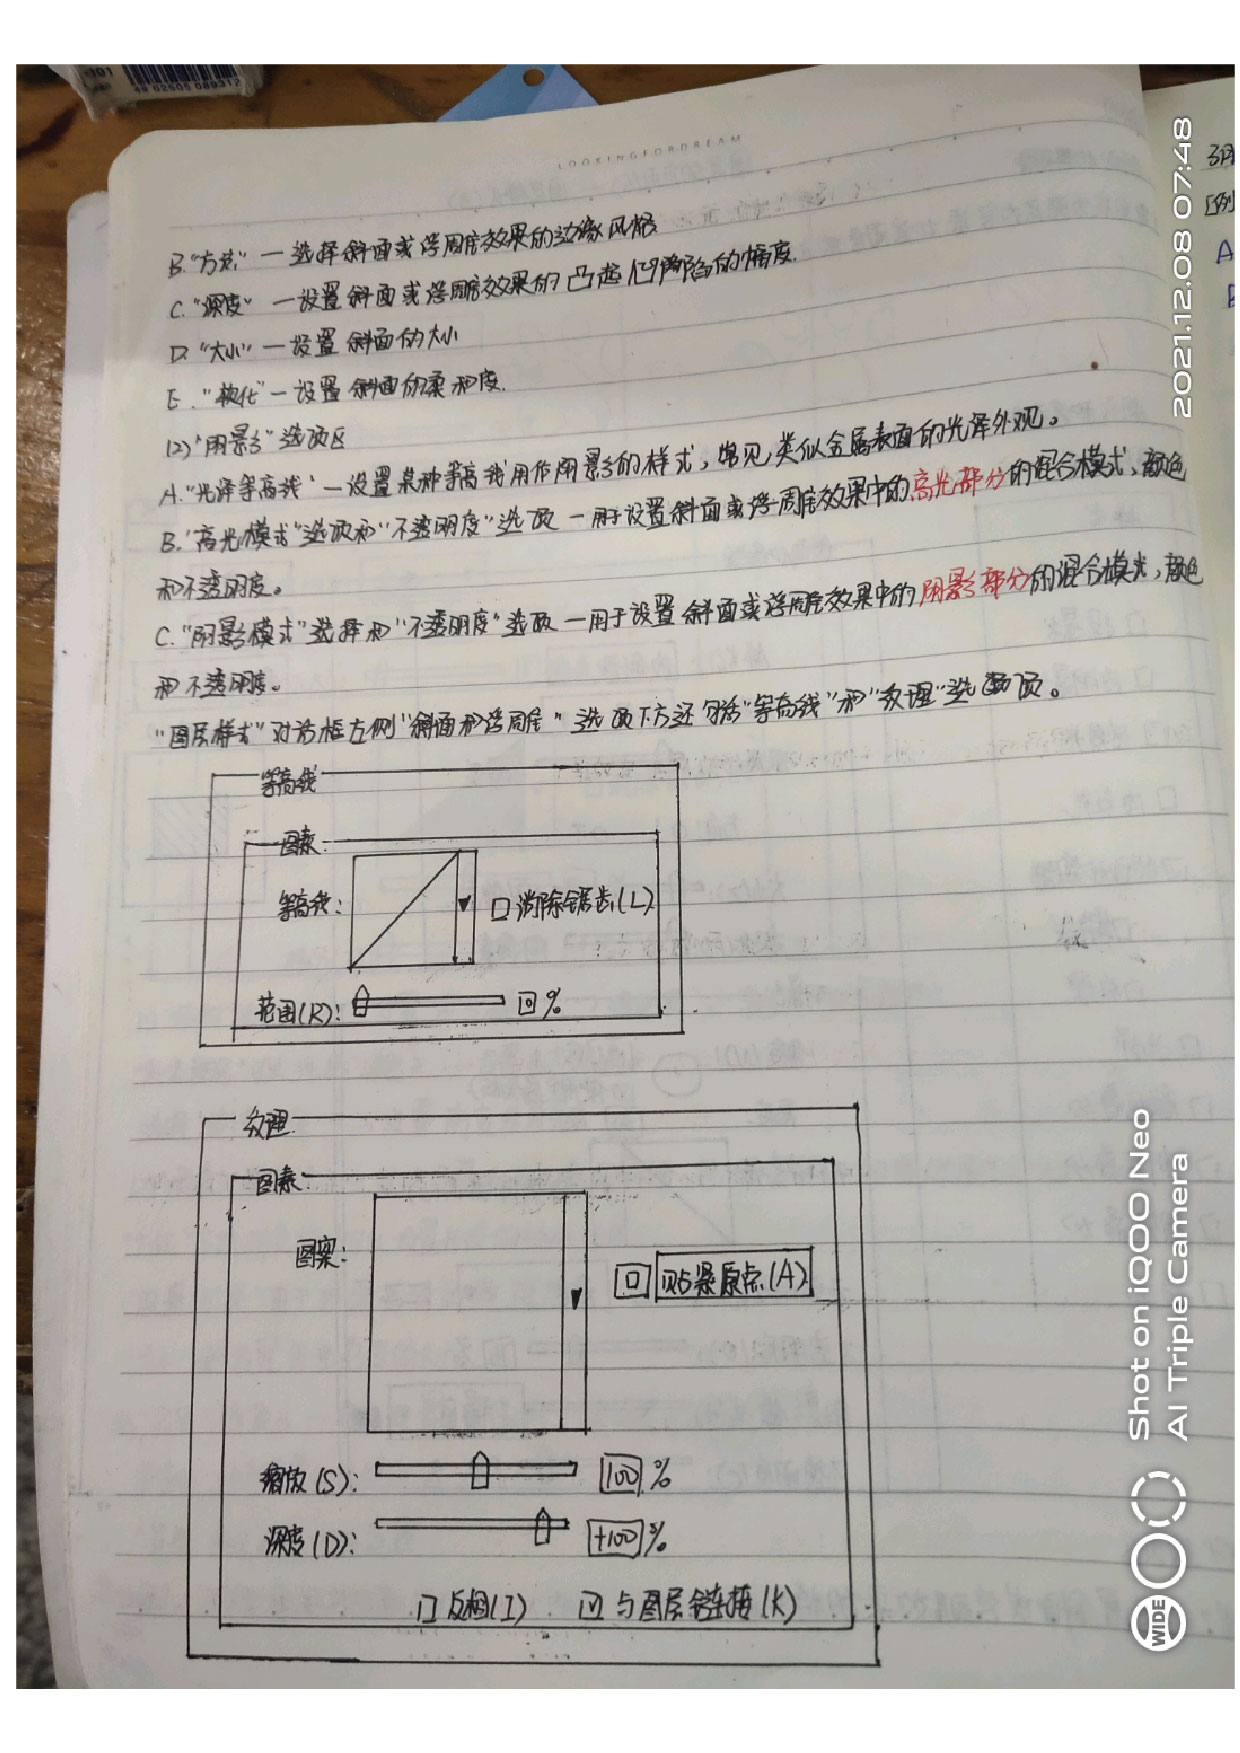 LOOKINGFORDREAM
B."方式" 一 选择斜面或浮雕效果的边缘风格
C."深度" 一设置斜面或浮雕效果的凸起凹陷的幅度.
D "大小" 一 设置斜面的大小
E."软化" 一 设置斜面的柔和度.
(2)"阴影"选项区
A."光泽等高线" 一设置某种等高线用作阴影的样式,常见类似金属表面的光泽外观。
B."高光模式"选项和"不透明度"选项 一用于设置斜面或浮雕效果中的高光部分的混合模式,颜色
和不透明度。
C."阴影模式"选择和"不透明度"选项 一用于设置斜面或浮雕效果中的阴影部分的混合模式,颜色
和不透明度。
"图层样式"对话框左侧"斜面和浮雕"选项下方还包括"等高线"和"纹理"选项。
等高线
图素
等高线: 消除锯齿(L)
范围(R): %
纹理
图素
图案: 贴紧原点(A)
缩放(S): 100 %
深度(D): +100 %
反相(I) 与图层链接(K)
2021.12.08 07:48
Shot on iQOO Neo
AI Triple Camera
WIDE